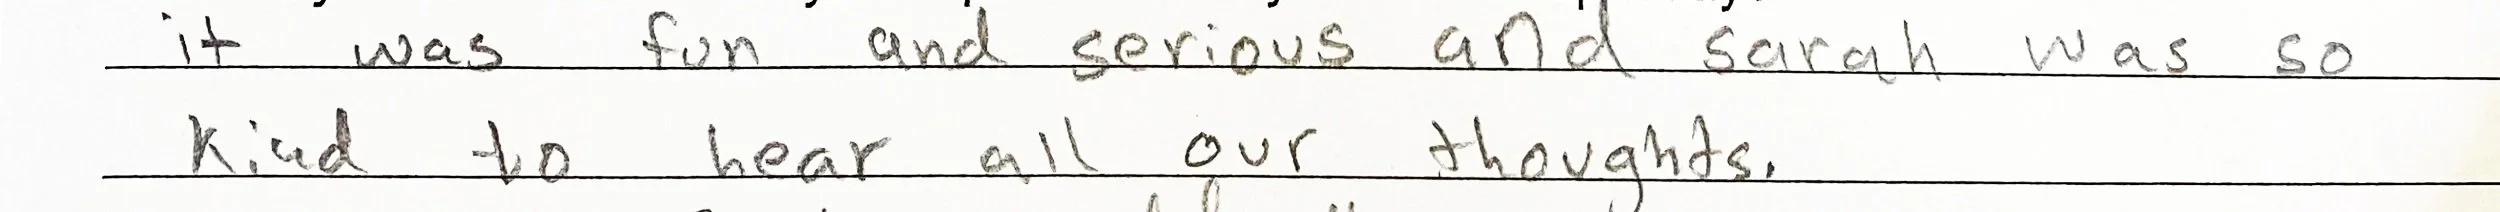 it was fun and serious and sarah was so
kind to hear all our thoughts.